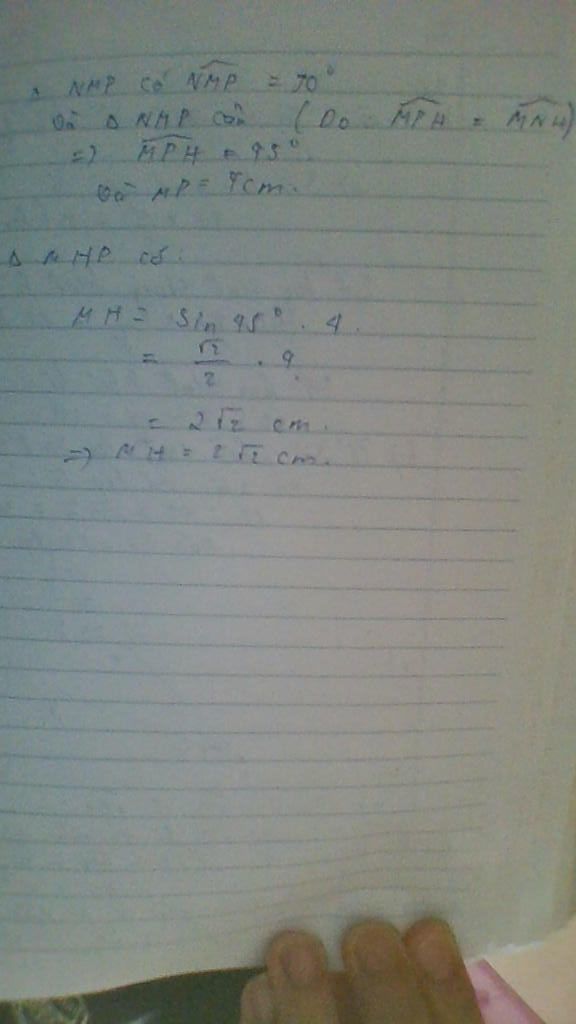 Δ NMP có \widehat{NMP} = 90°
và Δ NMP cân (Do \widehat{MPH} = \widehat{MNH})
=> \widehat{MPH} = 45°
và MP = 4cm.
Δ MHP có:
MH = Sin 45° . 4.
= \frac{√2}{2} . 4
= 2√2 cm.
=> MH = 2√2 cm.